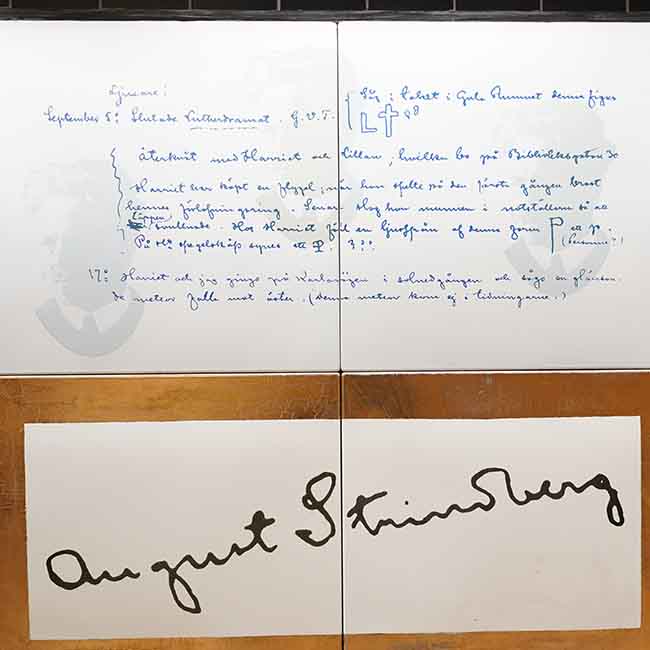 Ljusare!
September 5: Slutade Lutherdramat. G.V.T. Såg i taket i Gula Rummet denna figur
L
återknöt med Harriet och Lillan, hvilka bo på Biblioteksgatan 30
Harriet har köpt en flygel; när hon spelte på den första gången brast
hennes förlofningsring. Senare slog hon munnen i notstället så att
läppen
svullnade. Hos Harriet föll en af denna form P ett P.
På spegelskåp synes ett P. 3??
17: Harriet och jag gingo på Karlavägen i solnedgången och sågo en glänsan
de meteor falla mot öster. (Denna meteor kom ej i tidningarne.)
August Strindberg